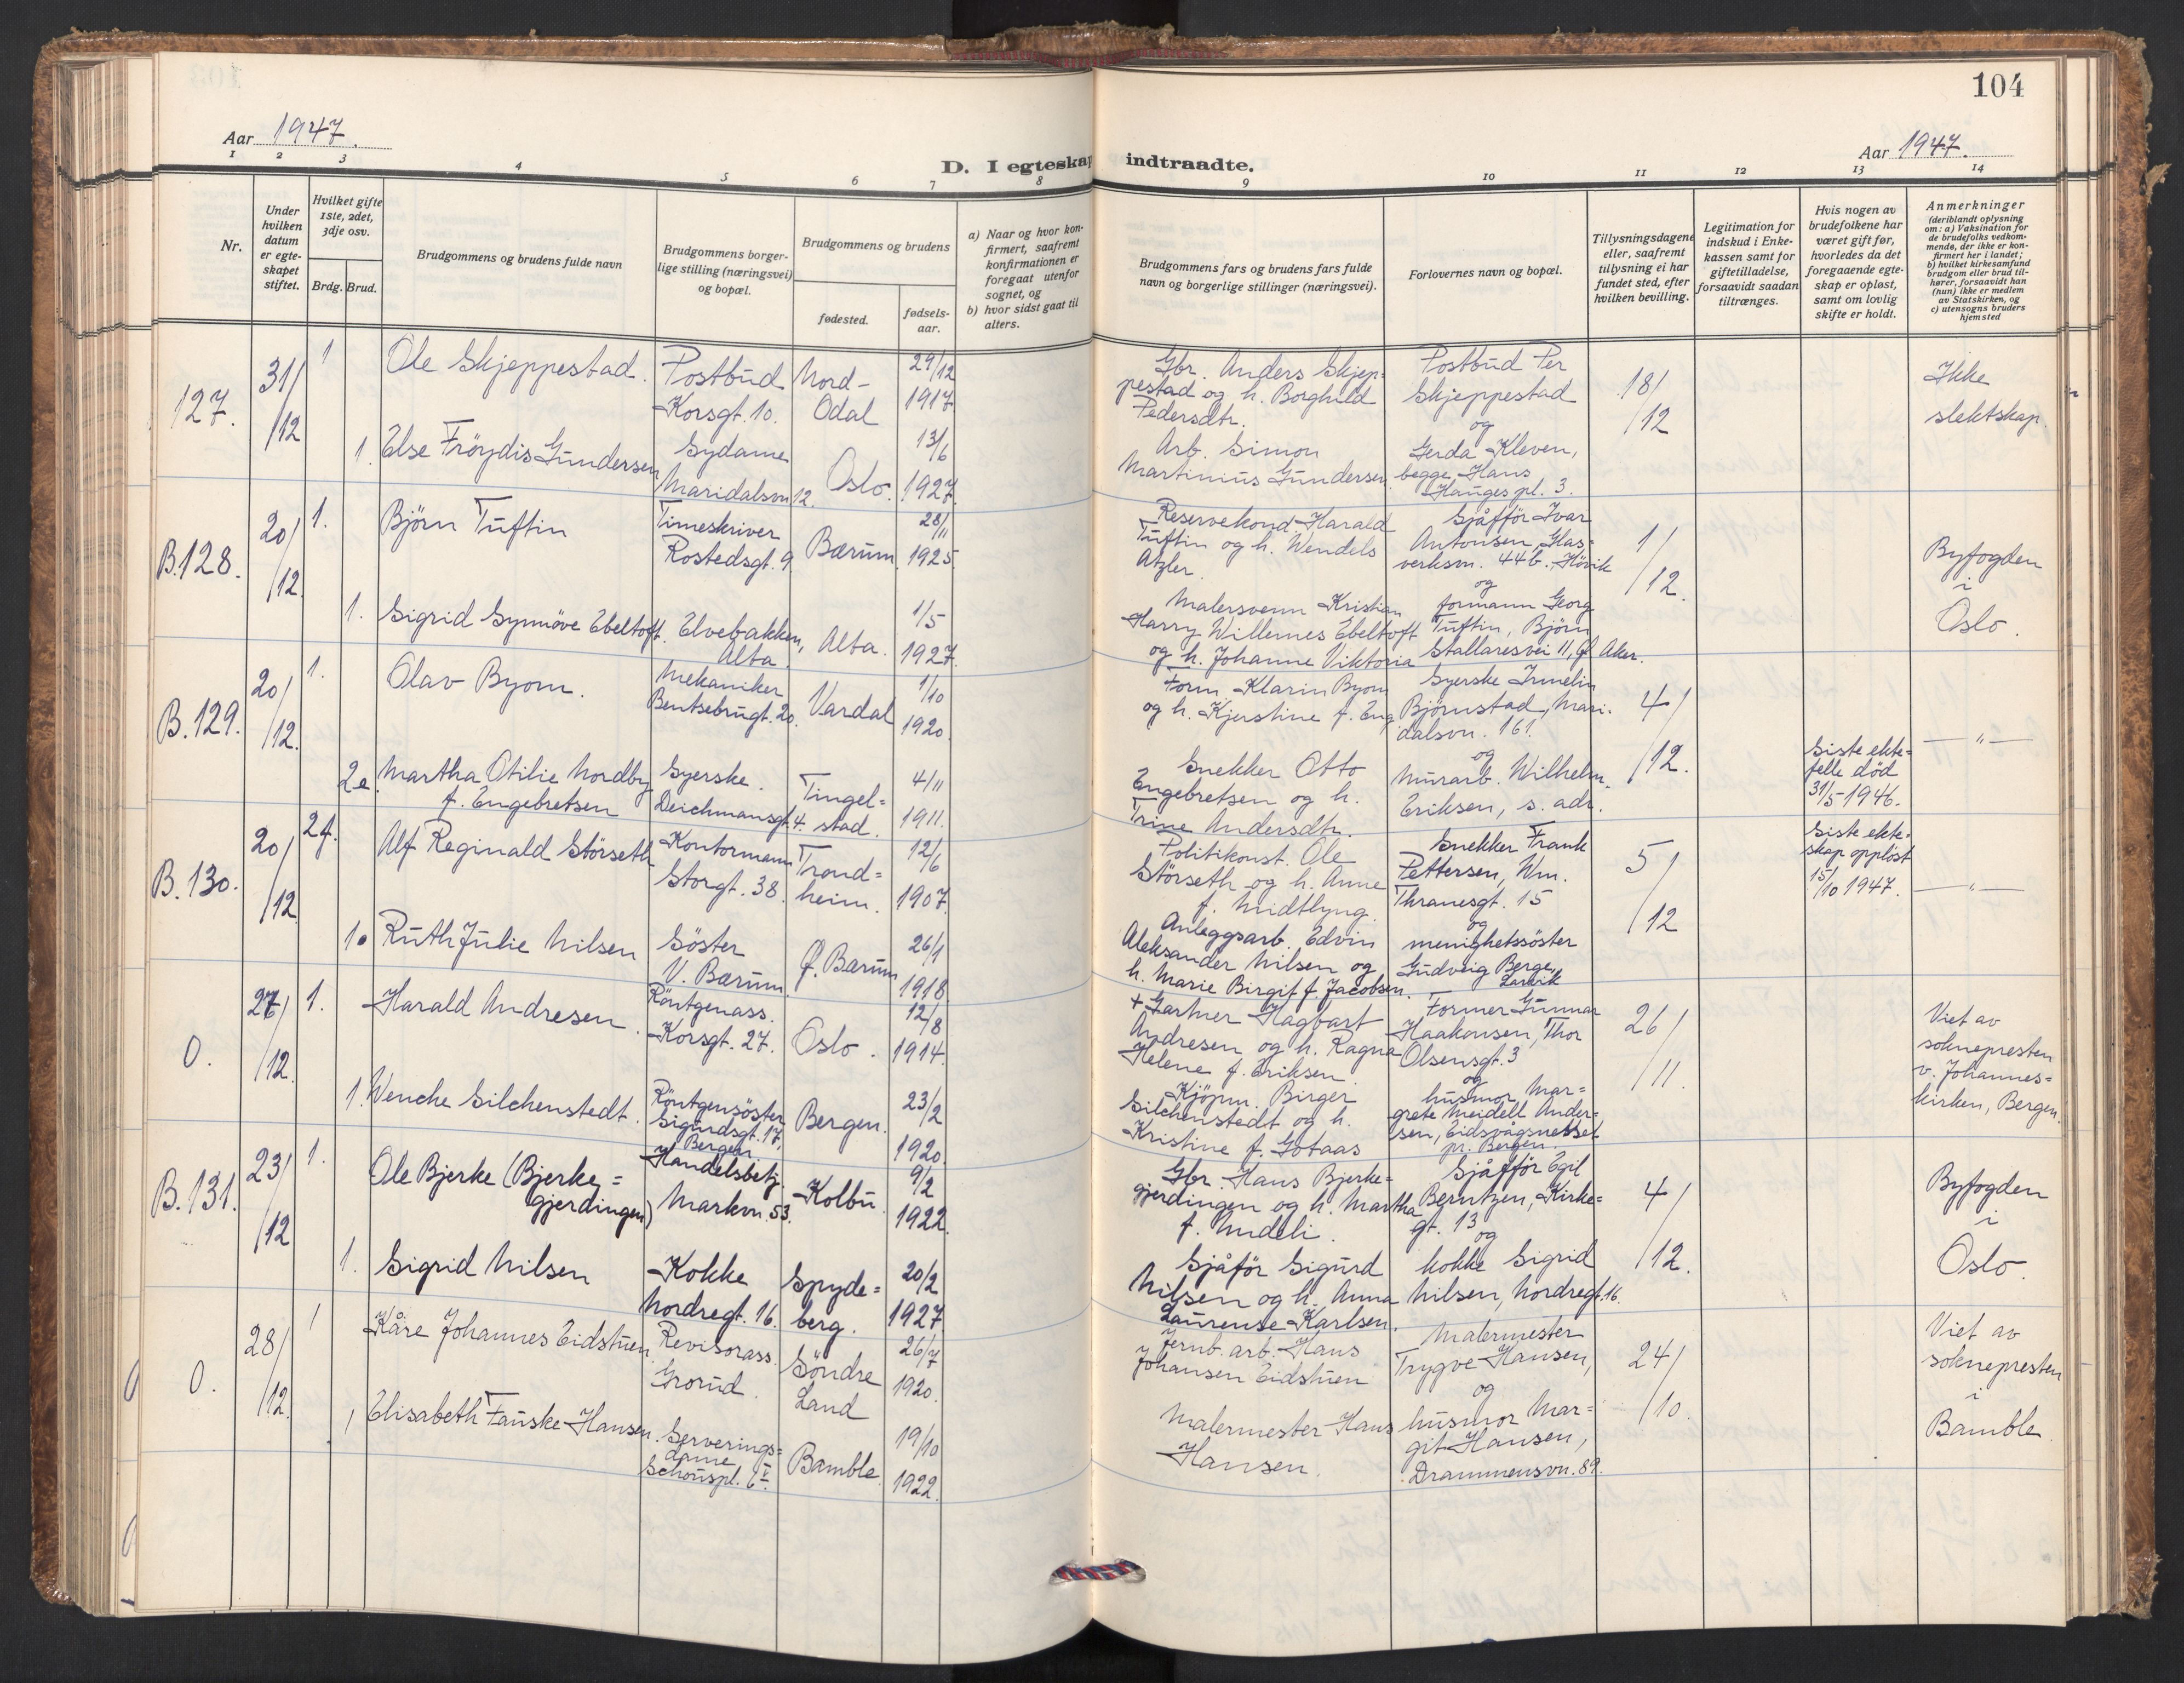 104
Aar 1947.
D. I egteskap indtraadte.
Aar 1947.
1 2 3 4 5 6 7 8 9 10 11 12 13 14
Nr.
Under hvilken datum er egteskapet stiftet.
Hvilket gifte 1ste, 2det, 3dje osv.
Brdg. Brud.
Brudgommens og brudens fulde navn
Brudgommens borgerlige stilling (næringsvei) og bopæl.
Brudgommens og brudens
fødested.
fødselsaar.
a) Naar og hvor konfirmert, saafremt konfirmationen er foregaat utenfor sognet, og
b) hvor sidst gaat til alters.
Brudgommens fars og brudens fars fulde navn og borgerlige stillinger (næringsvei).
Forlovernes navn og bopæl.
Tillysningsdagene eller, saafremt tillysning ei har fundet sted, efter hvilken bevilling.
Legitimation for indskud i Enkekassen samt for giftetilladelse, forsaavidt saadan tiltrænges.
Hvis nogen av brudefolkene har været gift før, hvorledes da det foregaaende egteskap er opløst, samt om lovlig skifte er holdt.
Anmerkninger
(deriblandt oplysning om: a) Vaksination for de brudefolks vedkommende, der ikke er konfirmert her i landet; b) hvilket kirkesamfund brudgom eller brud tilhører, forsaavidt han (hun) ikke er medlem av Statskirken, og c) utensogns bruders hjemsted
127.
31/12
1
Ole Skjeppestad.
Postbud
Korsgt. 10.
Nord-
Odal
29/12
1917
Gbr. Anders Skjep-
pestad og h. Borghild
Pedersdtr.
Postbud Per
Skjeppestad
og
Gerda Kleven,
begge Hans
Hauges pl. 3.
18/12
Ikke
slektskap.
1. Else Fröydis Gundersen
Sydame
Maridalsvn 12.
Oslo.
13/6
1927.
Arb. Simon
Martinius Gundersen.
B.128.
20/12
1.
Björn Tuftin
Timeskriver
Rostedsgt. 9.
Bærum
28/11
1925
Reservekond. Harald
Tuftin og h. Wendels
Atzler.
Sjåfför Ivar
Antonsen, Glas-
verksvn. 44b. Hövik
og
formann Georg
Tuftin, Björn
Stallaresvei 11, Ø. Aker.
1/12.
Byfogden
i
Oslo.
1. Sigrid Synnöve Ebeltoft.
Elvebakken,
Alta.
Alta.
1/5
1927.
Malersvenn Kristian
Harry Willernes Ebeltoft
og h. Johanne Viktoria
B.129.
20/12.
1.
Olav Byom.
Mekaniker
Bentsebrugt. 20.
Vardal
1/10
1920.
Form. Klarin Byom
og h. Kjerstine f. Eng
Syerske Irmelin
Björnstad, Mari-
dalsvn. 161.
og
Murarb. Wilhelm
Eriksen, s. adr.
4/12.
— " —
2e. Martha Otilie Nordby
f. Engebretsen
Syerske.
Deichmansgt. 4.
Tingel=
stad.
4/11
1911.
Snekker Otto
Engebretsen og h.
Trine Andersdtr.
Siste ekte=
felle död
31/5 1946.
B.130.
20/12
2f.
Alf Reginald Störseth
Kontormann
Storgt. 38.
Trond=
heim.
12/6
1907.
Politikonst. Ole
Störseth og h. Anne
f. Midtlyng.
Snekker Frank
Pettersen, Wm.
Thranesgt. 15
og
menighetssöster
Gudveig Berge,
Larvik
5/12
Siste ekte=
skap opplöst
15/10 1947.
— " —
1. Ruth Julie Nilsen
Söster
V. Bærum.
Ø. Bærum
26/1
1918
Anleggsarb. Edvin
Aleksander Nilsen og
h. Marie Birgit f. Jacobsen.
0.
27/12.
1.
Harald Andresen.
Röntgenass.
Korsgt. 27.
Oslo.
12/8
1914.
+ Gartner Hagbart
Andresen og h. Ragna
Helene f. Eriksen.
Former Gunnar
Haakonsen, Thor
Olsensgt. 3
og
husmor Mar=
grete Meidell Ander=
sen, Eidsvågsnesset
pr. Bergen.
26/11.
Viet av
soknepresten
v. Johannes=
kirken, Bergen.
1. Wenche Gilchenstedt.
Röntgensöster
Sigurdsgt. 17,
Bergen.
Bergen.
23/2
1920.
Kjöpm. Birger
Gilchenstedt og h.
Kristine f. Gotaas
B.131.
23/12
1.
Ole Bjerke (Bjerke=
gjerdingen)
Handelsbetj.
Markvn. 53.
Kolbu
9/2
1922.
Gbr. Hans Bjerke=
gjerdingen og h. Martha
f. Nudeli.
Sjåfför Egil
Berntzen, Kirke=
gt. 13
og
kokke Sigrid
Nilsen, Nordregt. 16.
4/12.
Byfogden
i
Oslo.
1. Sigrid Nilsen
Kokke
Nordregt. 16.
Spyde=
berg.
20/2
1927.
Sjåför Sigurd
Nilsen og h. Anna
Laurense Karlsen.
0.
28/12.
1
Kåre Johannes Eidstuen
Revisorass.
Grorud.
Söndre
Land
26/7
1920.
Jernb. arb. Hans
Johansen Eidstuen
Malermester
Trygve Hansen,
og
husmor Mar=
git Hansen,
Drammensvn. 89.
24/10.
Viet av
soknepresten
i
Bamble.
1 Elisabeth Fauske-Hansen.
Serverings=
dame
Schouspl.
Bamble
19/10
1922.
Malermester Hans
Hansen.